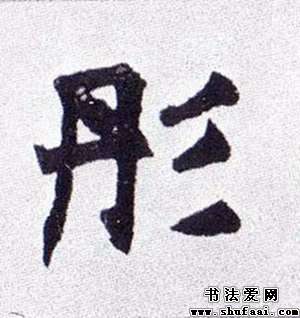 彤
书法爱网
www.shufaai.com